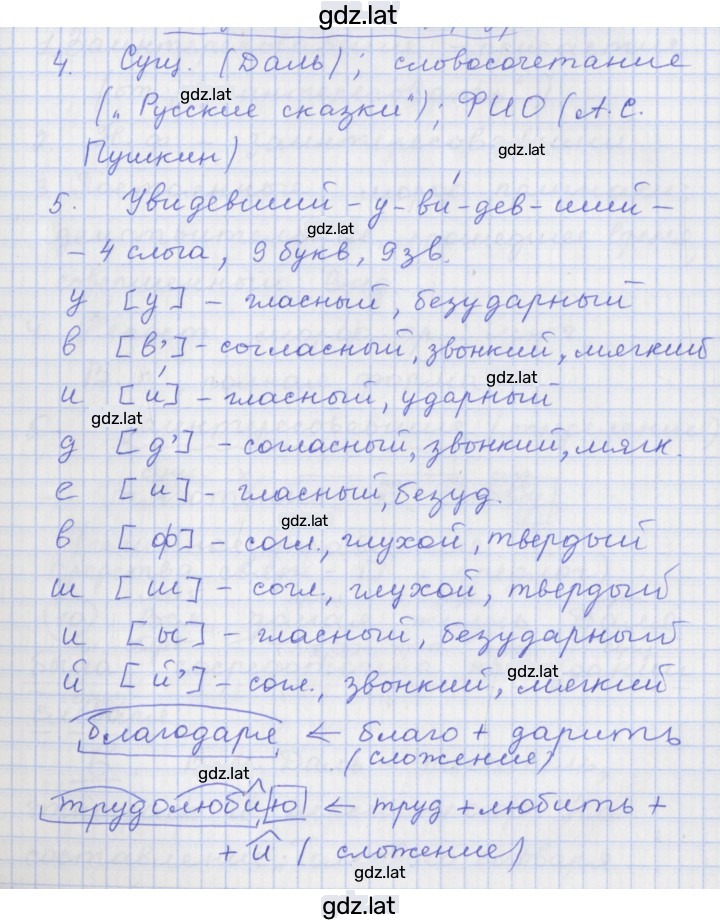 gdz.lat
4. Сущ. (Даль); словосочетание
gdz.lat
(„Русские сказки"); ФИО (А.С.
gdz.lat
Пушкин)
5. Увидевший - у-ви́-дев-ший -
gdz.lat
- 4 слога, 9 букв, 9 зв.
у [у] - гласный, безударный
в [в'] - согласный, звонкий, мягкий
gdz.lat
и [и́] - гласный, ударный
gdz.lat
д [д'] - согласный, звонкий, мягк.
е [и] - гласный, безуд.
gdz.lat
в [ф] - согл., глухой, твердый
ш [ш] - согл., глухой, твердый
и [ы] - гласный, безударный
gdz.lat
й [й'] - согл., звонкий, мягкий
благодаря ← благо + дарить
(сложение)
gdz.lat
трудолюбию ← труд + любить +
+ и (сложение)
gdz.lat
gdz.lat